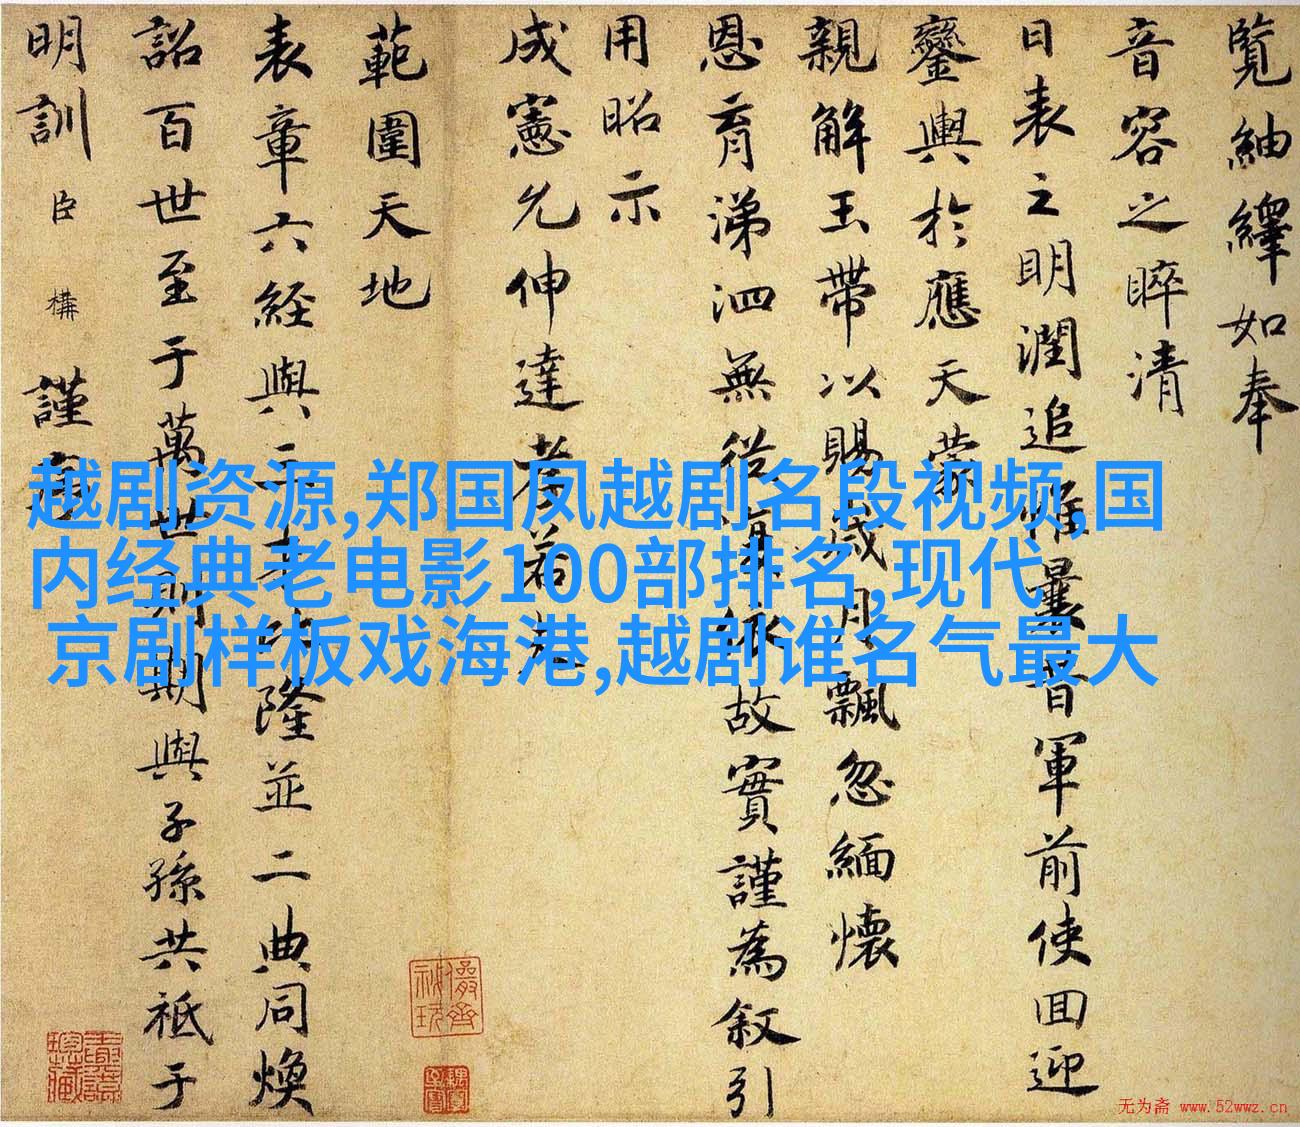 覽紬繹如奉
音容之睟清
日表之明潤追惟曩昔軍前使回迎
鑾輿於應天蒙
親解玉帶以賜歲月飄忽緬懷
恩育涕泗無從復依故實謹為叙引
用昭示
成憲允伸達孝若夫
範圍天地
表章六經與三隆並二典同煥
詔百世至于萬世則期與子孫共祗于
明訓臣構謹
越剧资源,郑国凤越剧名段视频,国
内经典老电影100部排名,现代
京剧样板戏海港,越剧谁名气最大
无为斋 www.52wwz.cn